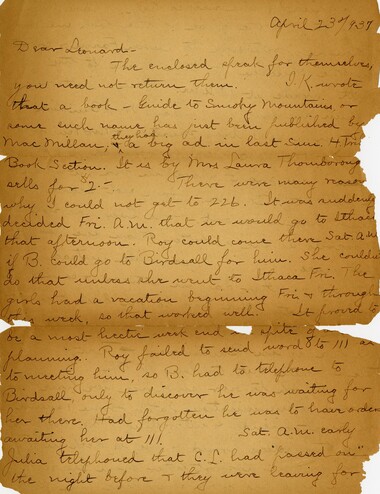 April 23rd/937
Dear Leonard-
The enclosed speak for themselves,
you need not return them. I.K. wrote
that a book - Guide to Smoky Mountains or
some such name has just been published by
MacMillan, & they had a big ad in last Sun. H. Trib
Book Section. It is by Mrs Laura Thornborough
sells for $2- There were many reasons
why I could not get to 226. It was suddenly
decided Fri. A.M. that we would go to Ithaca
that afternoon. Roy could come there Sat. A.M.
if B. could go to Birdsall for him. She couldn't
do that unless she went to Ithaca Fri. The
girls had a vacation beginning Fri & through
this week, so that worked well. It proved to
be a most hectic week end in spite of
planning. Roy failed to send word to 111 as
to meeting him, so B. had to telephone to
Birdsall, only to discover he was waiting for
her there. Had forgotten he was to have orders
awaiting her at 111. Sat. A.M. early
Julia telephoned that C.L. had "passed on"
the night before & they were leaving for